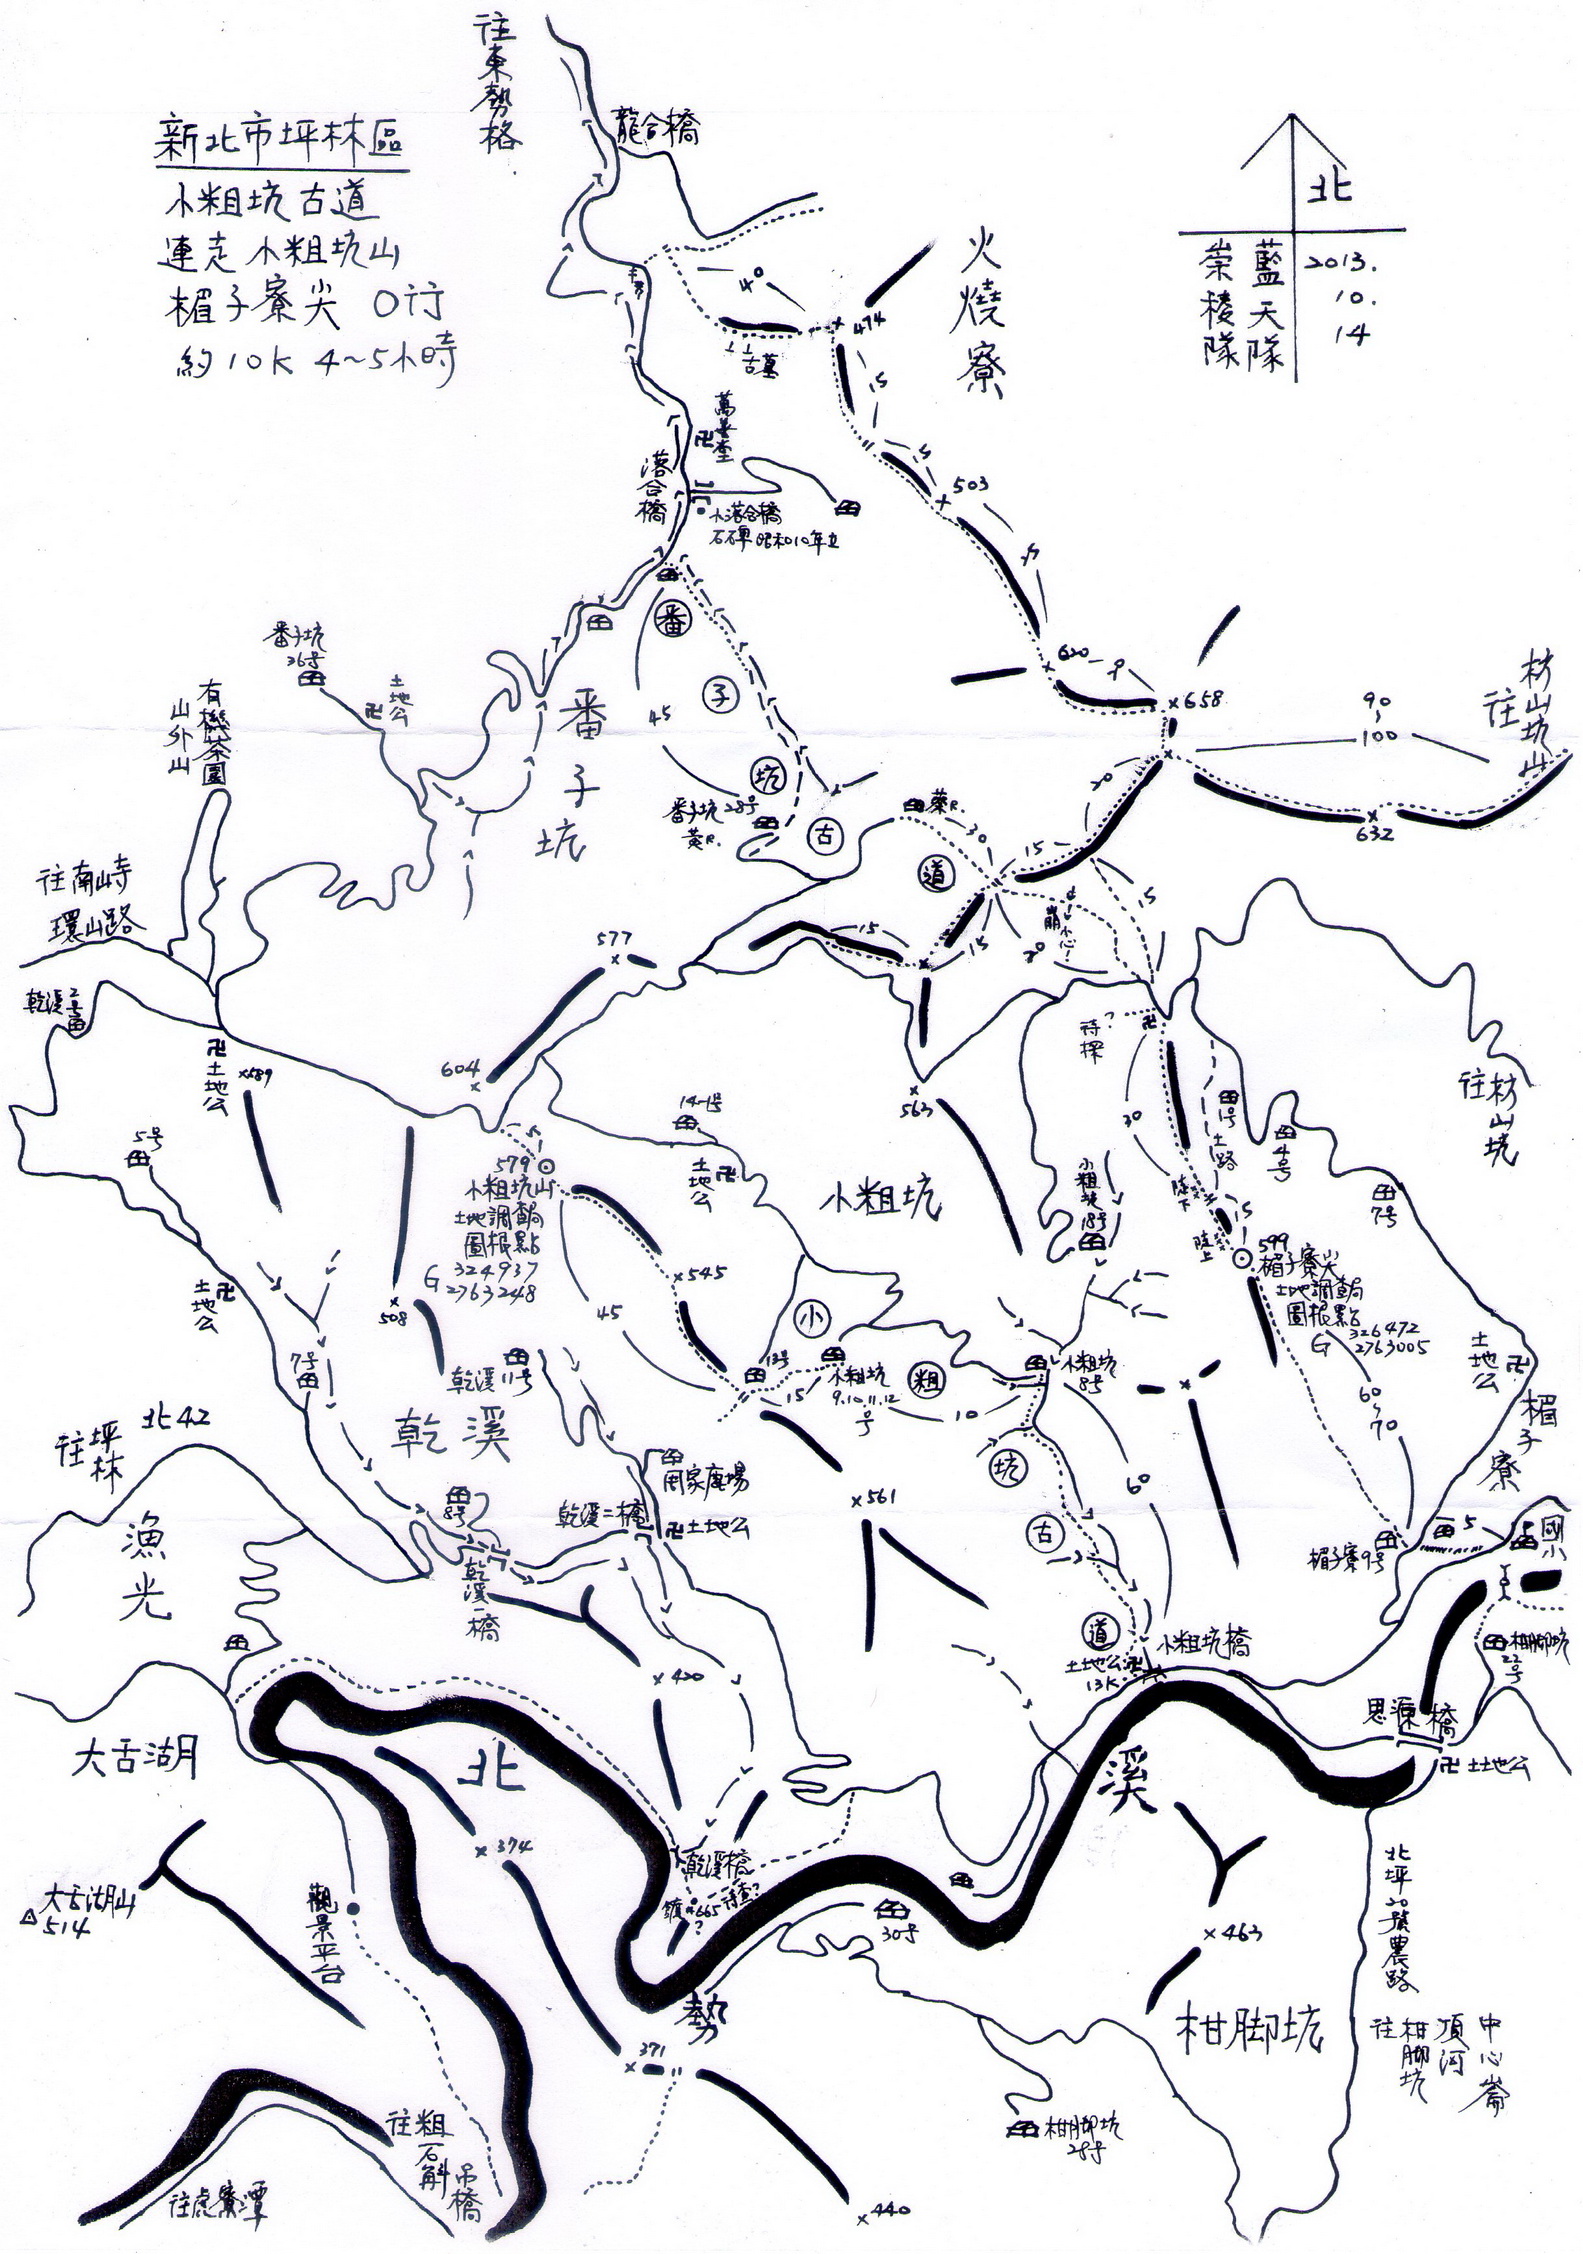 新北市坪林區
小粗坑古道
連走小粗坑山
楣子寮尖 O行
約10K 4~5小時
往東勢格
龍合橋
北
藍天隊
崇稜隊
2013.
10.
14
火燒寮
40
474
古墓
15
萬善堂
卍
落合橋
小落合橋
石碑昭和10年立
5
503
15
番子坑古道
番子坑
36号
土地公
卍
有機茶園
山外山
番子坑
45
番子坑28号
黃R.
620
9
658
90
~
100
往枋山坑山
632
20
蔡R.
30
15
15
崩
小心!
20
15
15
往南山寺
環山路
乾溪2号
577
604
卍
土地公
×589
5号
14-1号
土地公
卍
563
小粗坑
待探?
卍
30
1号
土路
4号
7号
往枋山坑
小粗坑18号
陡下
陡上
15
599
楣子寮尖
土地調查局
圖根點
G 326472
2763005
60
~
70
土地公
卍
楣子寮
5
579
小粗坑山
土地調查局
圖根點
G 324937
2763248
×545
45
508
土地公
卍
7号
乾溪11号
13号
15
小粗坑
9.10.11.12
号
10
小粗坑
8号
小粗坑古道
60
北42
往坪林
乾溪
周家農場
乾溪二橋
卍土地公
8号
乾溪一橋
漁光
×561
楣子寮9号
5
國小
柑腳坑
22号
小粗坑橋
土地公卍
13K
思源橋
卍土地公
×420
大舌湖
北
勢
溪
×374
乾溪橋
大舌湖山
△514
觀景平台
30号
×463
北坪20號農路
柑腳坑
往柑腳坑
頂河
中心崙
371
柑腳坑
28号
往粗石斛吊橋
往虎寮潭
×440